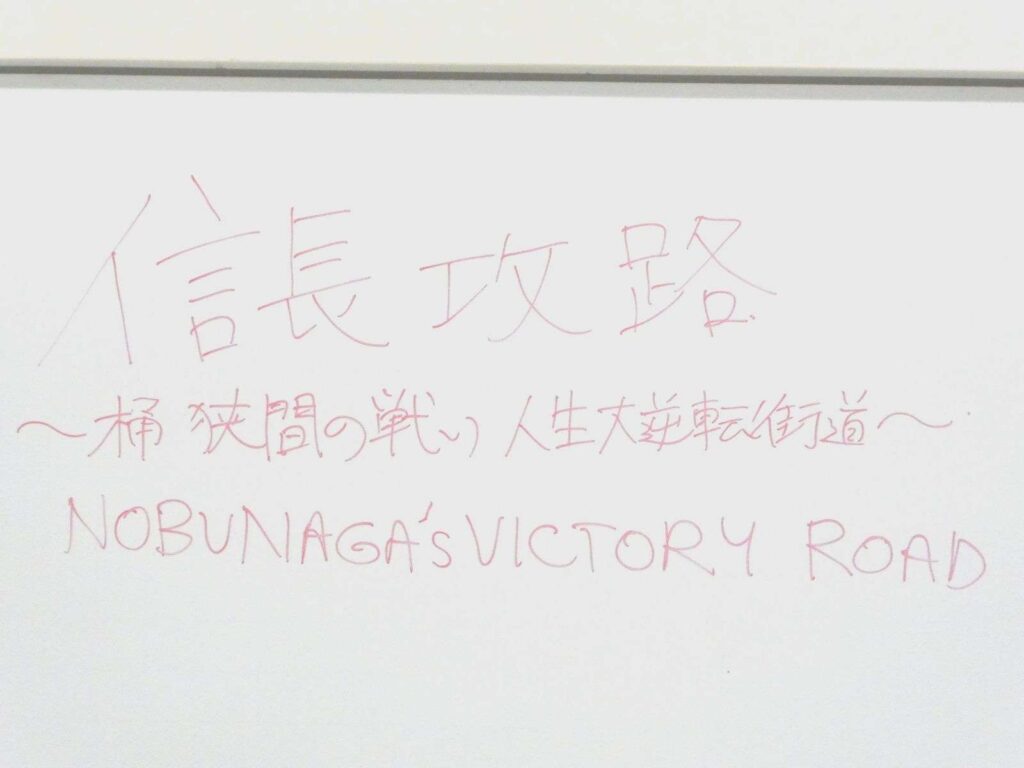 信長攻路
～桶狭間の戦い 人生大逆転街道～
NOBUNAGA's VICTORY ROAD